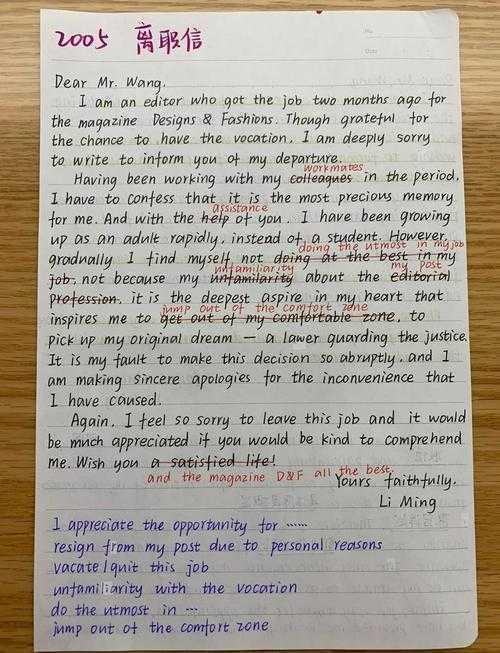 2005 离职信
No.
Date
Dear Mr. Wang,
I am an editor who got the job two months ago for
the magazine Designs & Fashions. Though grateful for
the chance to have the vocation, I am deeply sorry
to write to inform you of my departure.
workmates
Having been working with my colleagues in the period,
I have to confess that it is the most precious memory
assistance
for me. And with the help of you, I have been growing
up as an adult rapidly, instead of a student. However,
doing the utmost in my job
gradually I find myself not doing at the best in my
unfamiliarity my post
job, not because my unfamiliarity about the editorial
profession, it is the deepest aspire in my heart that
jump out of the comfort zone
inspires me to get out of my comfortable zone, to
pick up my original dream — a lawer guarding the justice.
It is my fault to make this decision so abruptly, and I
am making sincere apologies for the inconvenience that
I have caused.
Again, I feel so sorry to leave this job and it would
be much appreciated if you would be kind to comprehend
me. Wish you a satisfied life!
and the magazine D&F all the best.
Yours faithfully,
Li Ming
I appreciate the opportunity for ……
resign from my post due to personal reasons
vacate/quit this job
unfamiliarity with the vocation
do the utmost in …
jump out of the comfort zone